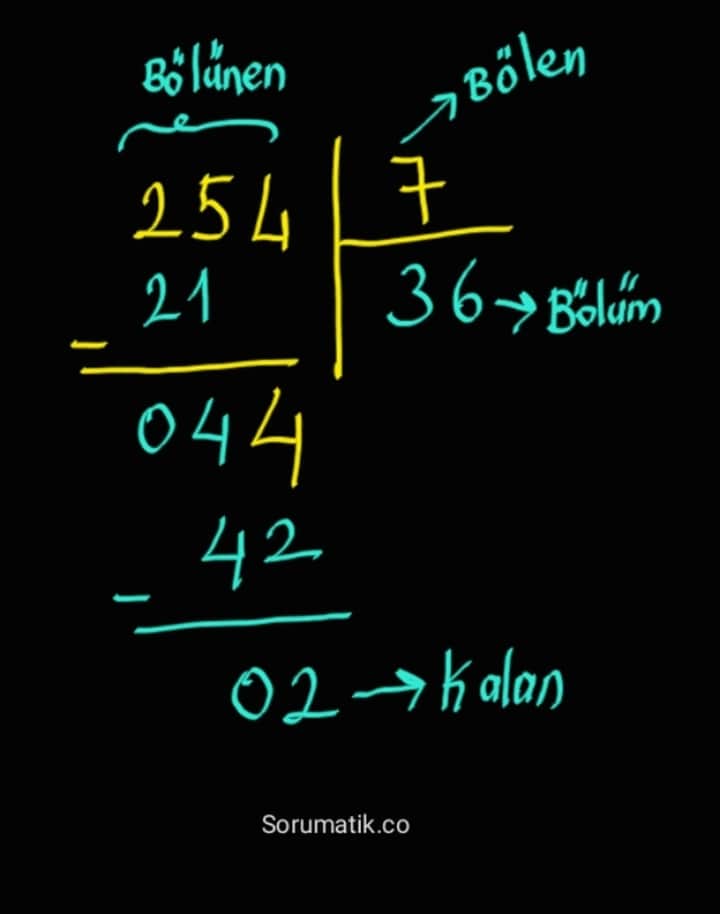 Bölünen
Bölen
254
7
21
36 → Bölüm
-
044
42
-
02 → Kalan
Sorumatik.co